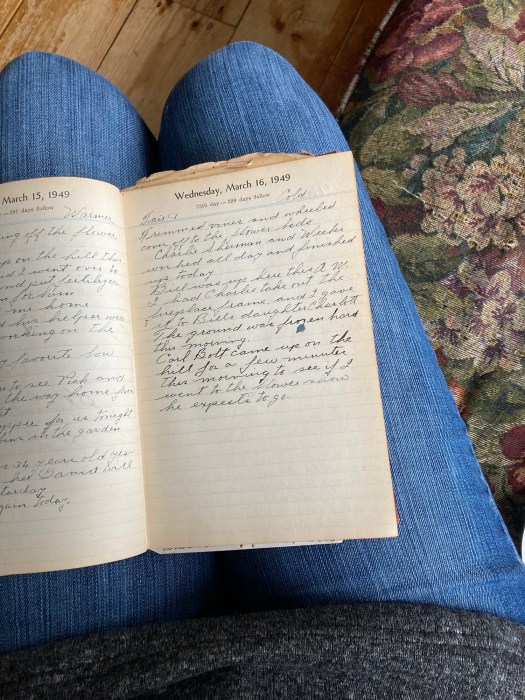 March 15, 1949
291 days follow
Warmer
ing off the flower
up on the hill this
and I went over to
and put fertilizer
in for him
me home
his helper were
working on the
favorite
to see Dick and
the way home
for us tonight
in the garden
is 34 years old yes-
David will
today
Wednesday, March 16, 1949
75th day — 290 days follow
Fair Cold
Trimmed vines and wheeled
cover off to the flower beds
Charlie Sherman and
worked all day and finished
up today
was up here this A.M.
I had Charlie take out the
fireplace frame and I gave
it to daughter
The ground was frozen hard
this morning.
Carl Bolt came up on the
hill for a few minutes
this morning to see if I
went to the flower show
he expects to go